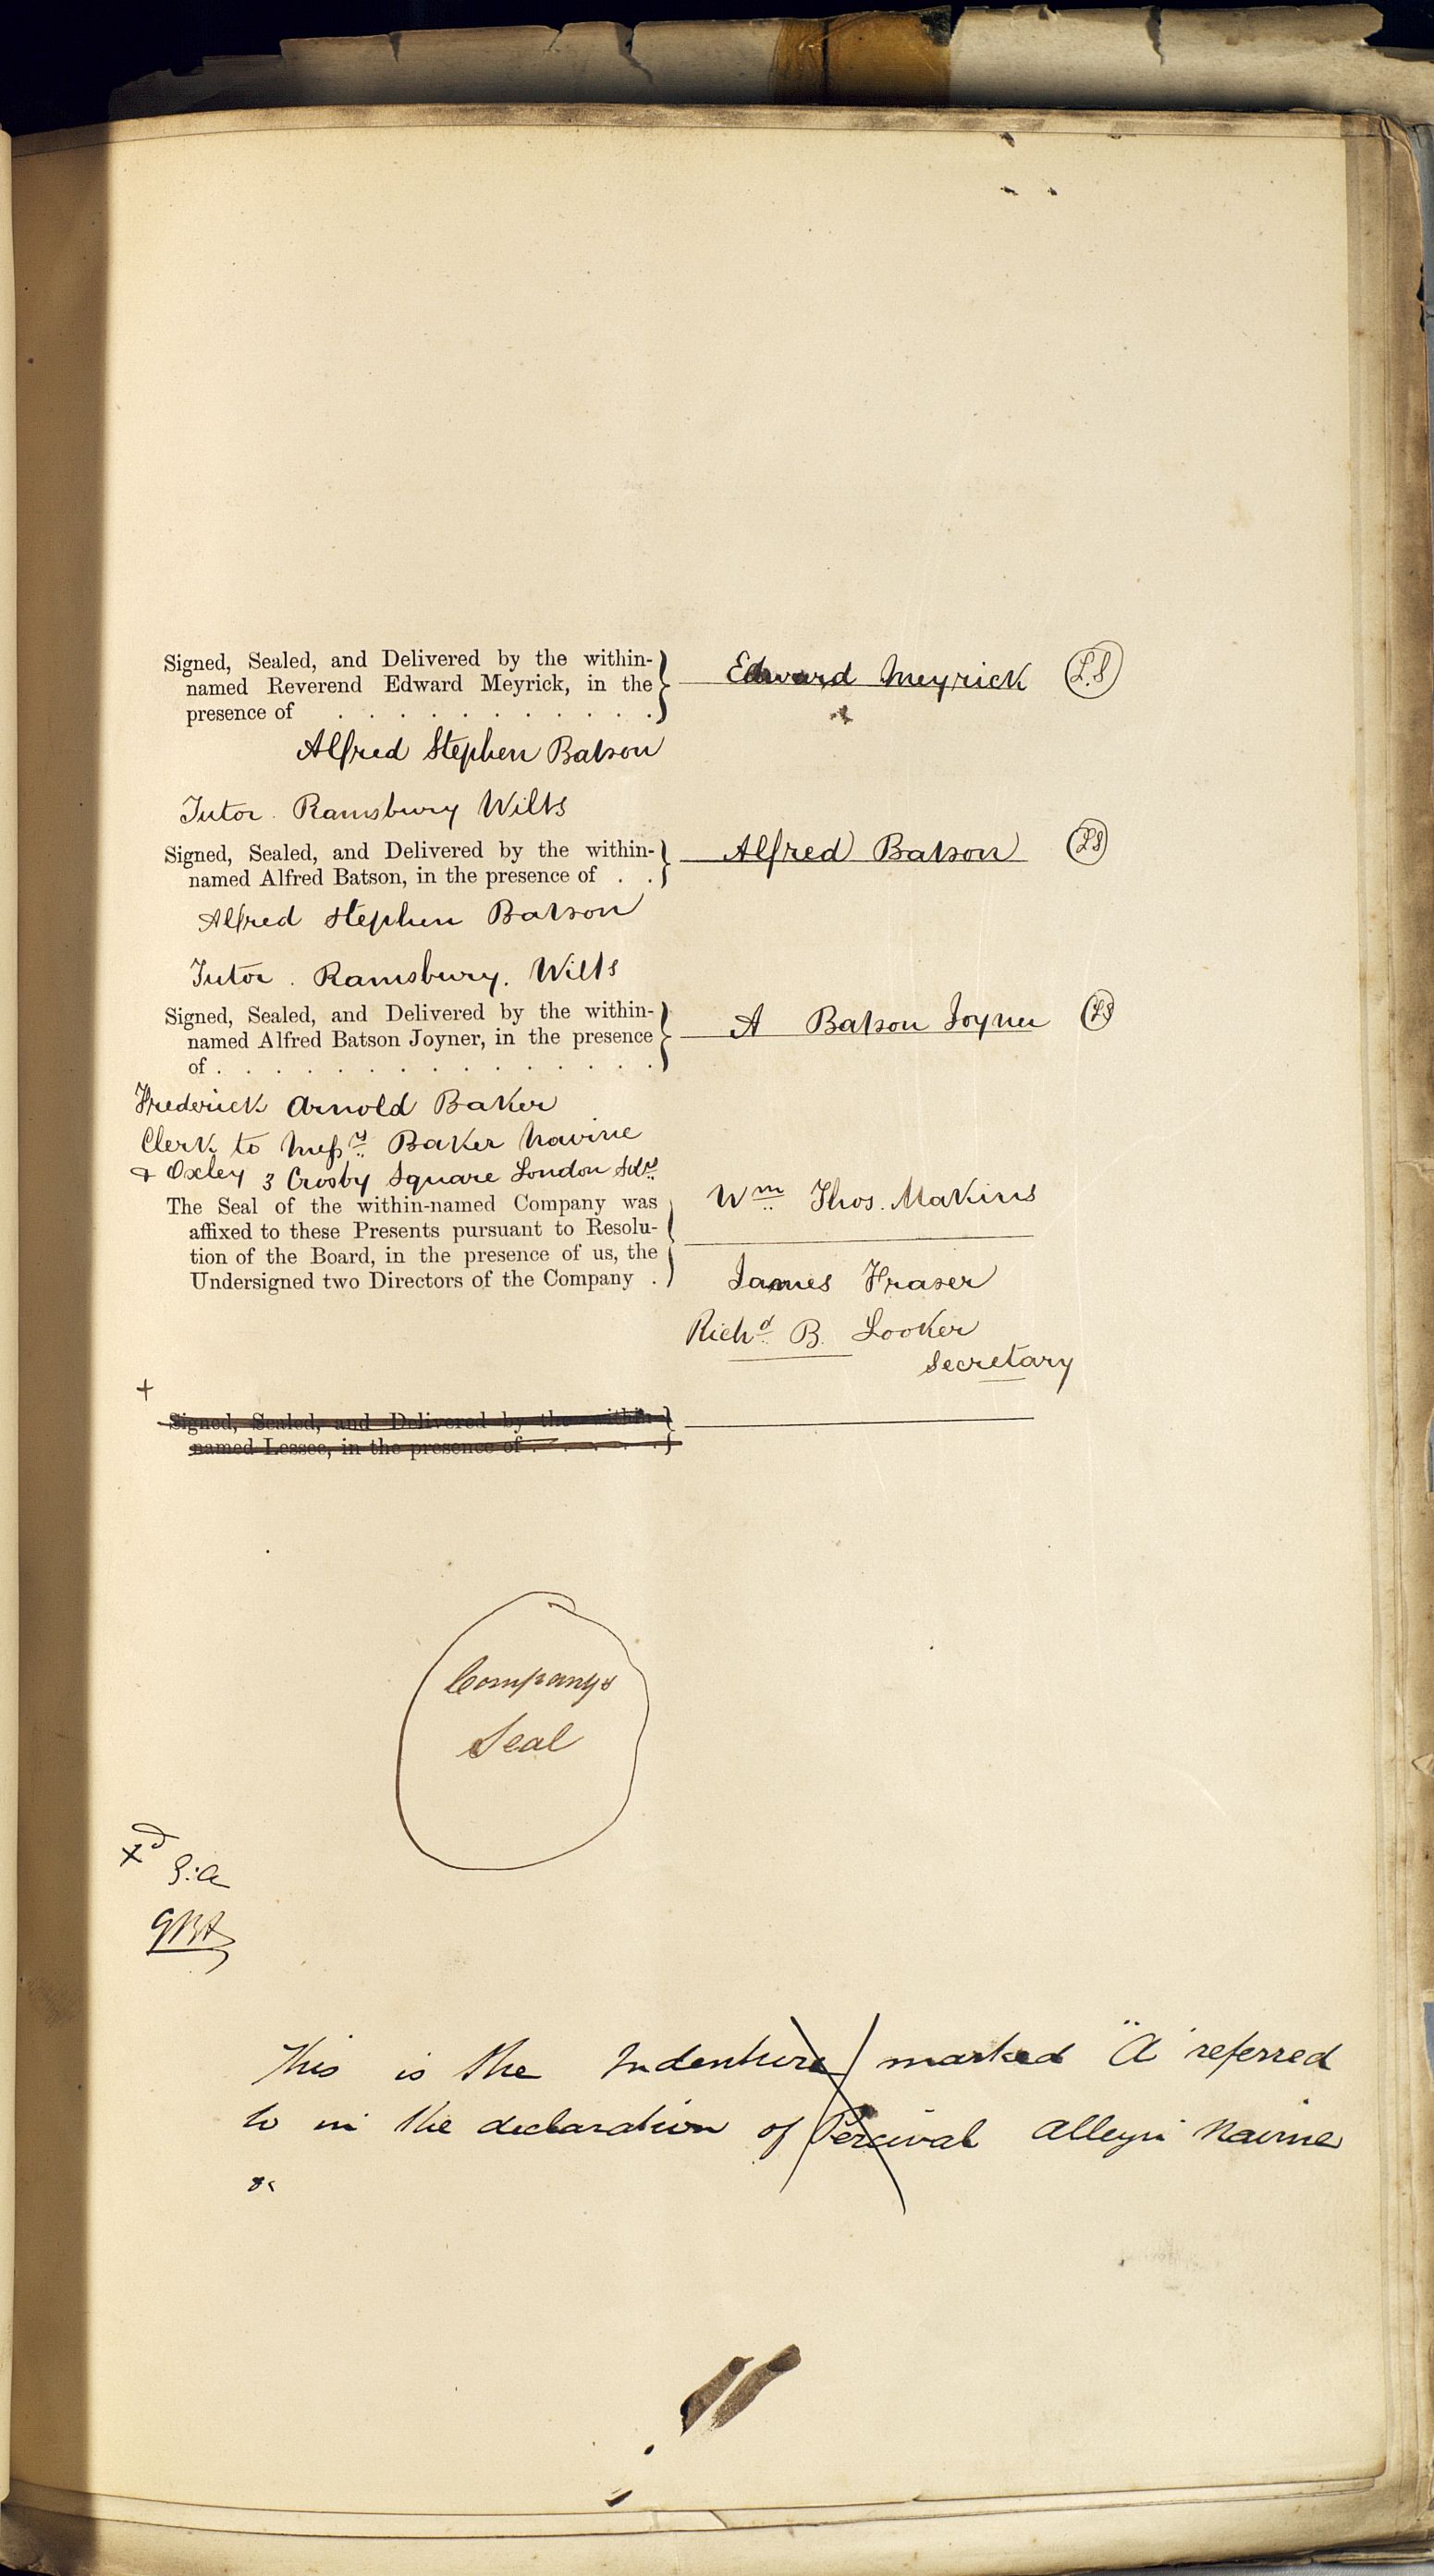 Signed, Sealed, and Delivered by the within-
named Reverend Edward Meyrick, in the
presence of . . . . . . . . . . .
Edward Meyrick L.S
Alfred Stephen Batson
Tutor. Ramsbury Wilts
Signed, Sealed, and Delivered by the within-
named Alfred Batson, in the presence of . .
Alfred Batson LS
Alfred Stephen Batson
Tutor. Ramsbury. Wilts
Signed, Sealed, and Delivered by the within-
named Alfred Batson Joyner, in the presence
of . . . . . . . . . . . . . . .
A Batson Joyner LS
Frederick Arnold Baker
Clerk to Messrs Baker Nairne
& Oxley 3 Crosby Square London Solrs
The Seal of the within-named Company was
affixed to these Presents pursuant to Resolu-
tion of the Board, in the presence of us, the
Undersigned two Directors of the Company .
Wm Thos. Makins
James Fraser
Richd B. Looker
Secretary
+
Signed, Sealed, and Delivered by the within-
named Lessee, in the presence of . . . . .
Companys
Seal
This is the Indenture marked "A" referred
to in the declaration of Percival Alleyn Nairne